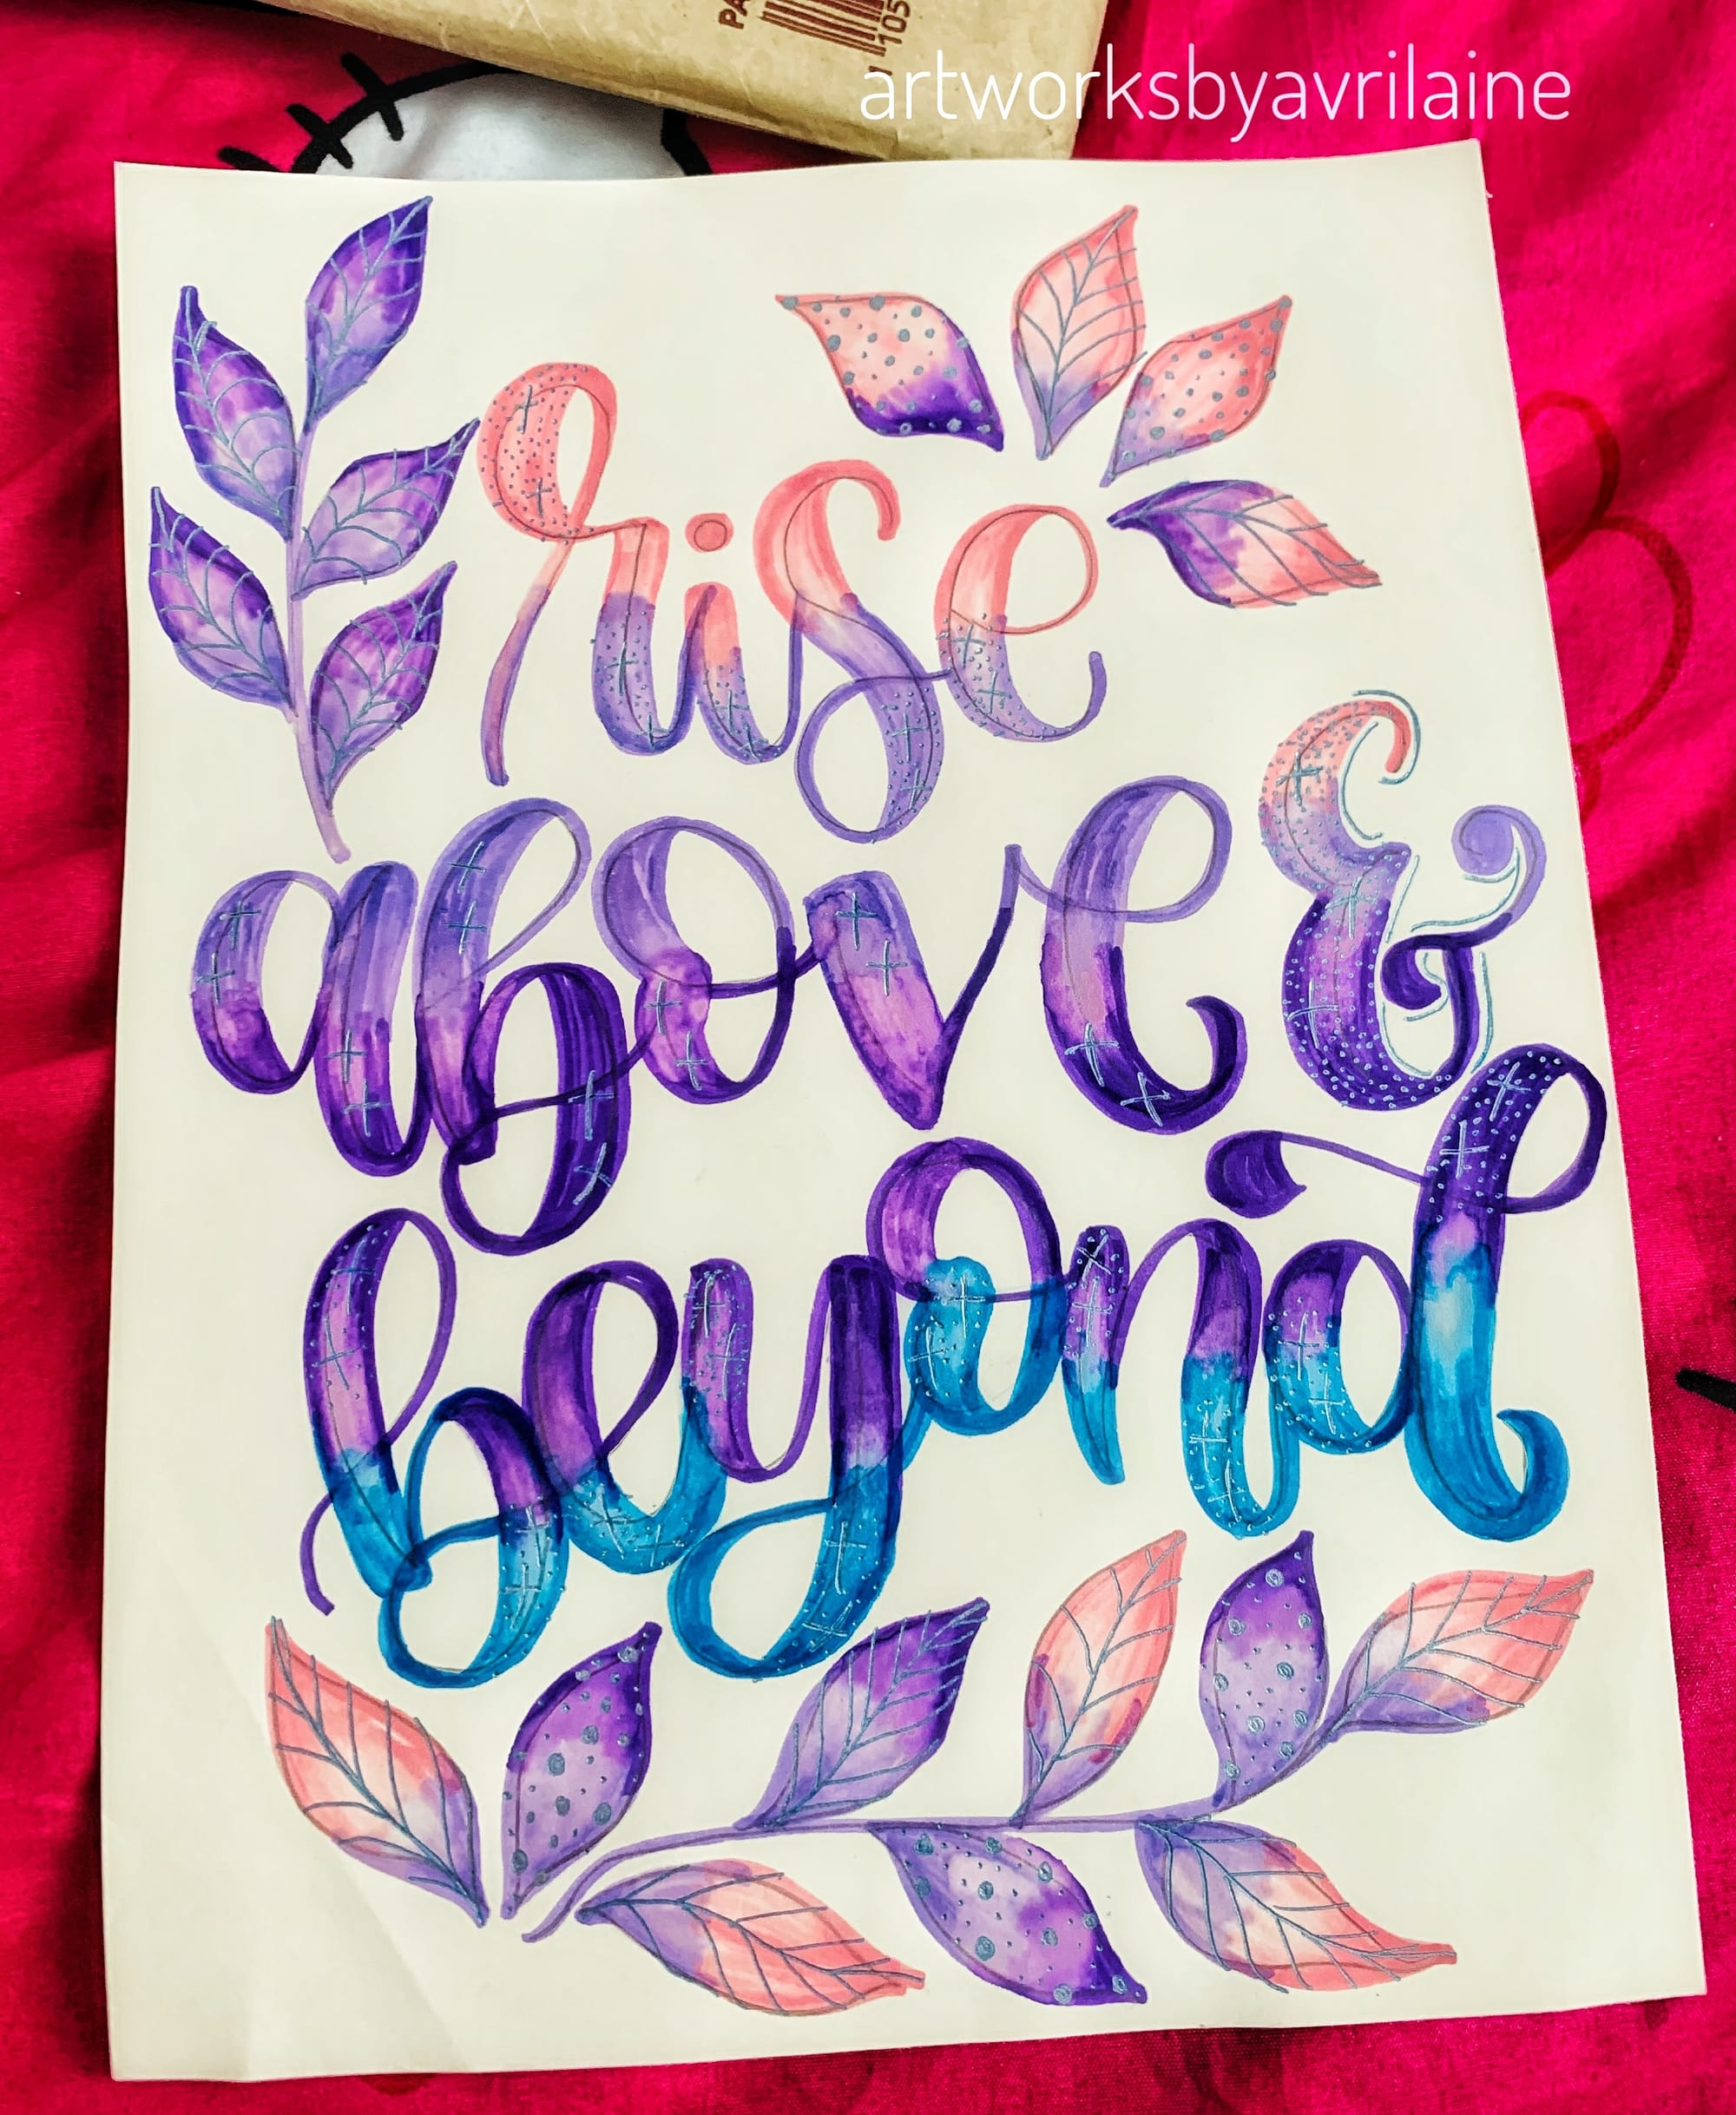 artworksbyavrilaine
rise
above &
beyond